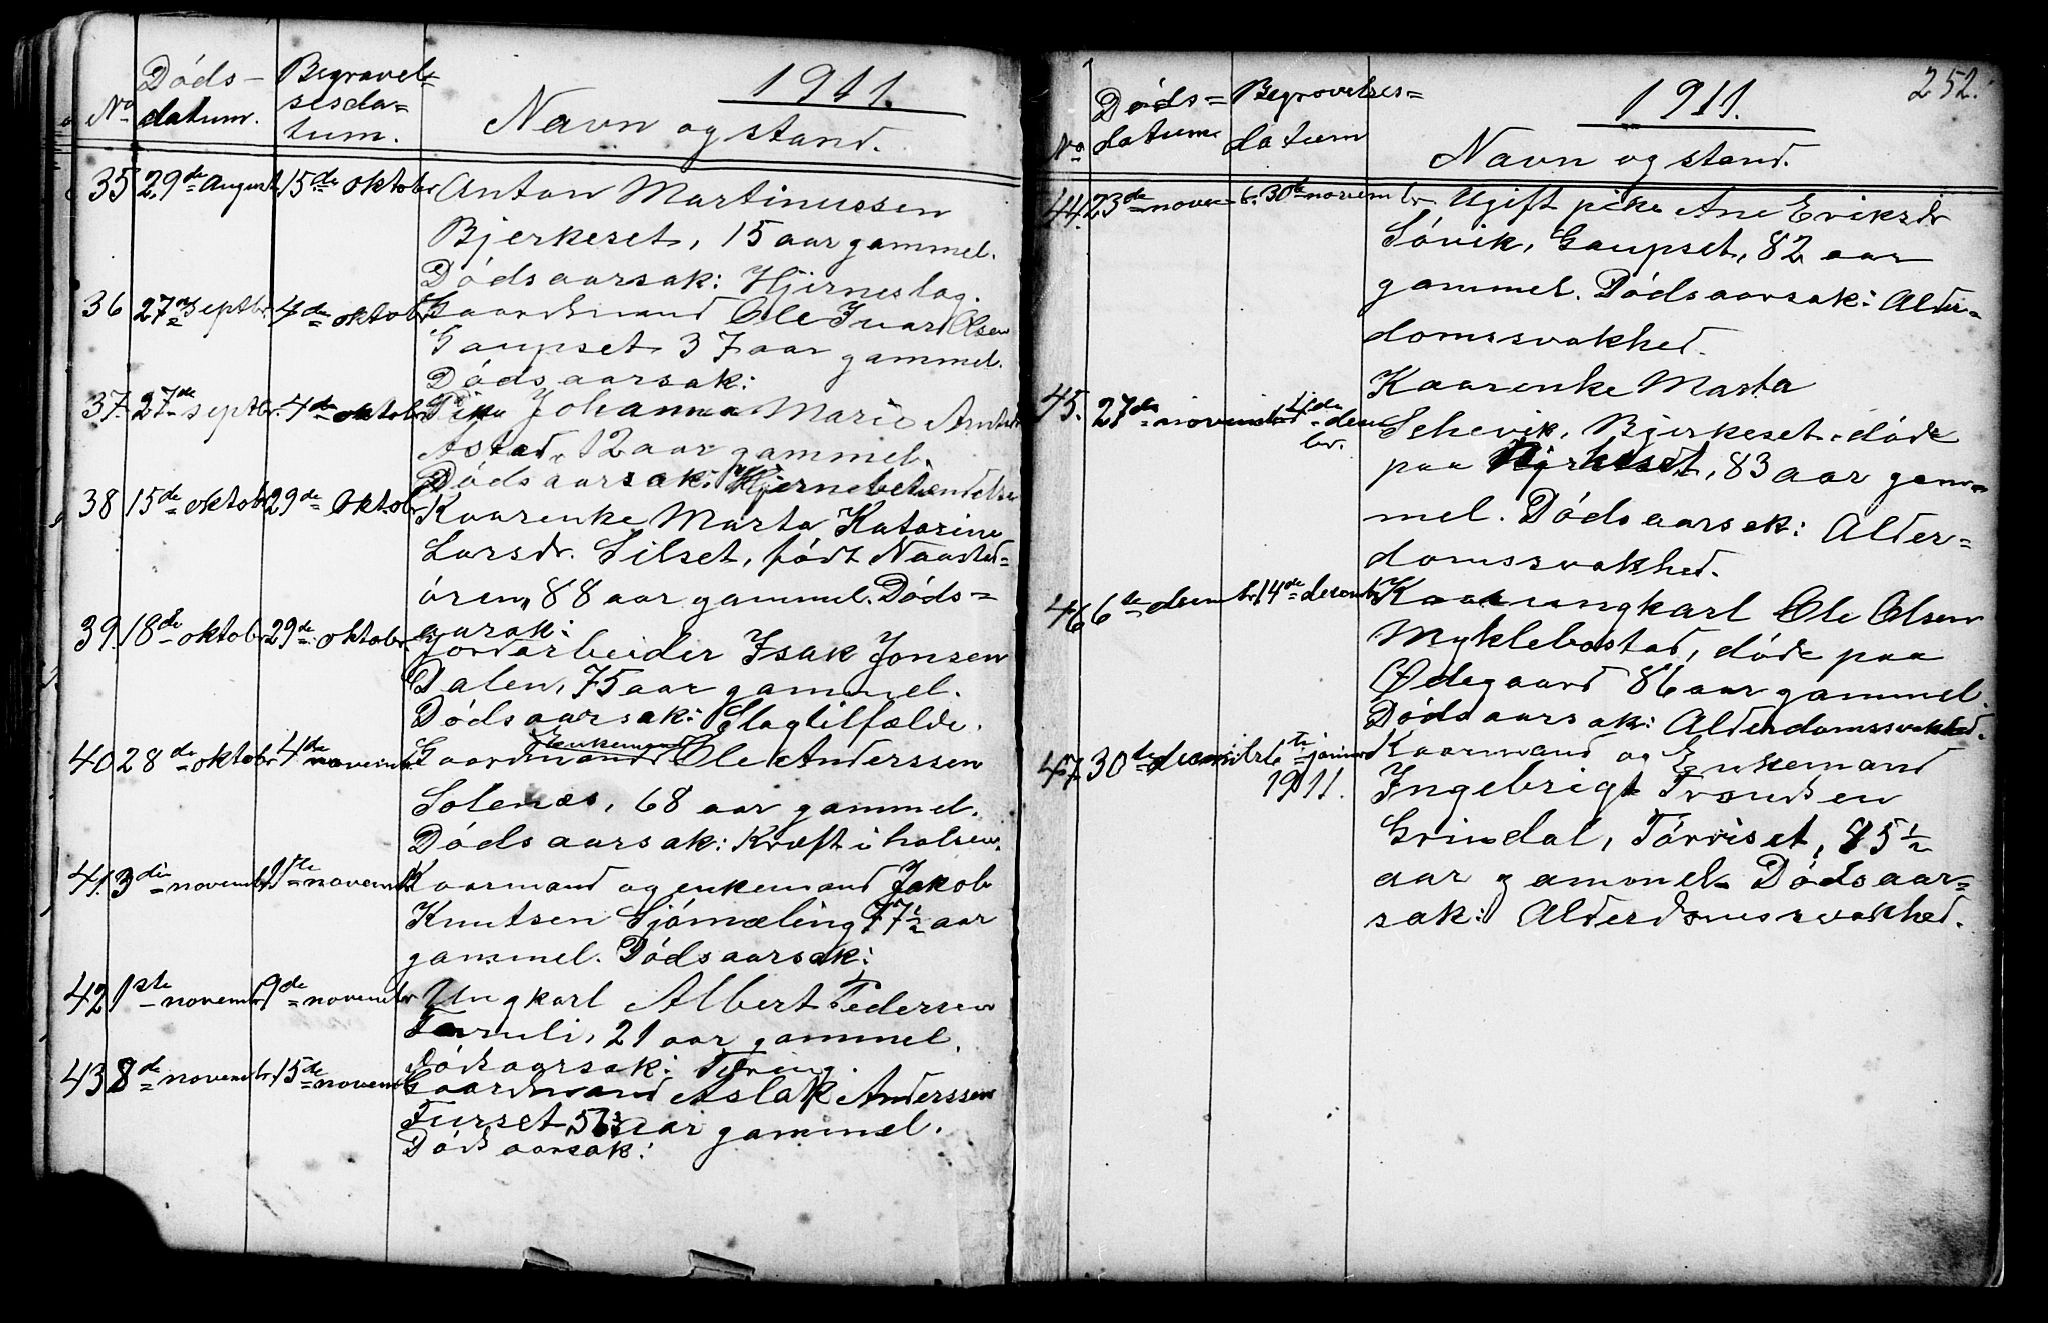 1911.
No Dóds-datum. Begravel=sesda=tum. Navn og stand.
35 29de August 15de oktobr Anton Martinussen
Bjerkeset, 15 aar gammel.
Dódsaarsak: Hjerneslag.
36 27de septbr. 4de oktobr Gaardmand Ole Ivar Olsen
Gaupset 37 aar gammel.
Dódsaarsak:
37. 27de septbr. 4de oktobr Pike Johanna Marie
Astad, 12 aar gammel.
Dódsaarsak: Hjernebetændelse
38 15de oktobr 29de Oktobr Kaarenke Marta Katarine
Larsdr. Silset, fódt Naasted=
óren, 88 aar gammel. Dóds=
aarsak:
39. 18de oktobr 29de oktobr. Jordarbeider Isak Jonsen
Dalen, 75 aar gammel.
Dódsaarsak: Slagtilfælde.
Enkemand
40 28de oktobr 4de novembr Gaardmand Ole Anderssen
Solenæs, 68 aar gammel.
Dódsaarsak: Kræft i halsen.
41. 3die novembr novembr Kaarmand og enkemand Jakob
Knutsen Sjómæling 77½ aar
gammel. Dódsaarsak:
42 1ste novembr 9de novembr Ungkarl Albert Pedersen
21 aar gammel.
Dódsaarsak: Tæring.
43 8de novembr. 15de novembr Gaardmand Aslak Anderssen
Furset, aar gammel.
Dódsaarsak:
252.
1911.
No Dóds=datum Begravelses=datum Navn og stand.
44. 23de novem=br. 30te novembr Ugift pike Ane Eriksdr
Sóvik, Gaupset, 82 aar
gammel. Dódsaarsak: Alder=
domssvakhed.
45. 27de novembr 4de decem br. Kaarenke Marta
Schevik, Bjerkeset, dóde
paa Bjerkeset, 83 aar gam=
mel. Dódsaarsak: Alder=
domssvakhed.
46 6te decembr. 14de decembr Kaarungkarl Ole Olsen
Myklebostad, dóde paa
Ødegaard 86 aar gammel.
Dódsaarsak: Alderdomssvakhed.
47. 30te decembr 6te januar Kaarmand og Enkemand
1911. Ingebrigt Trondsen
Grindal, Tórviset, 85½
aar gammel. Dódsaar=
sak: Alderdomssvakhed.